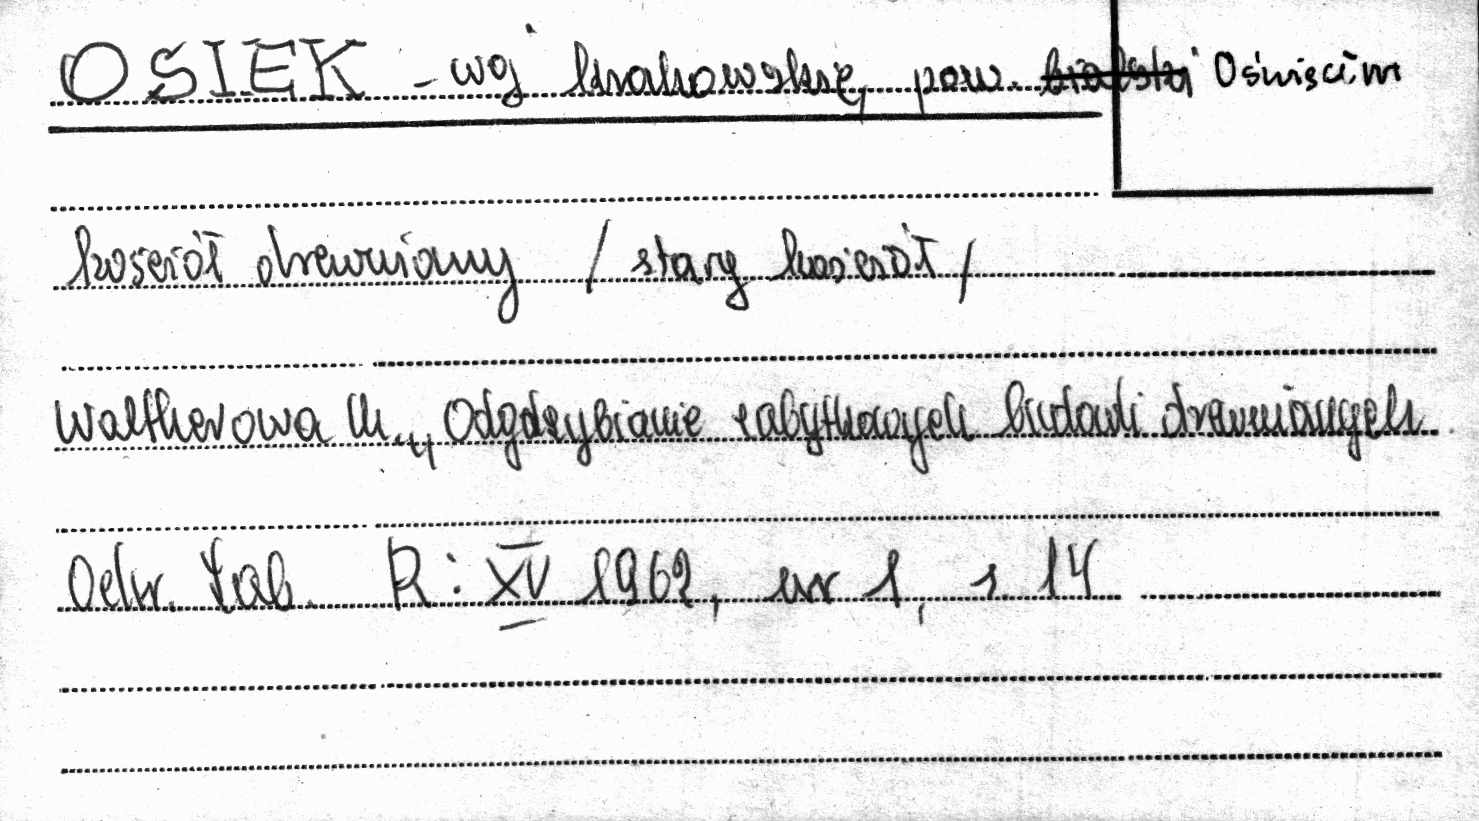 OSIEK - woj krakowskie, pow. bialski Oświęcim
kościół drewniany / stary kościół /
Waltherowa M., „Odgrzybianie zabytkowych budowli drewnianych
Ochr. Zab. R: XV 1962, nr 1, s. 14